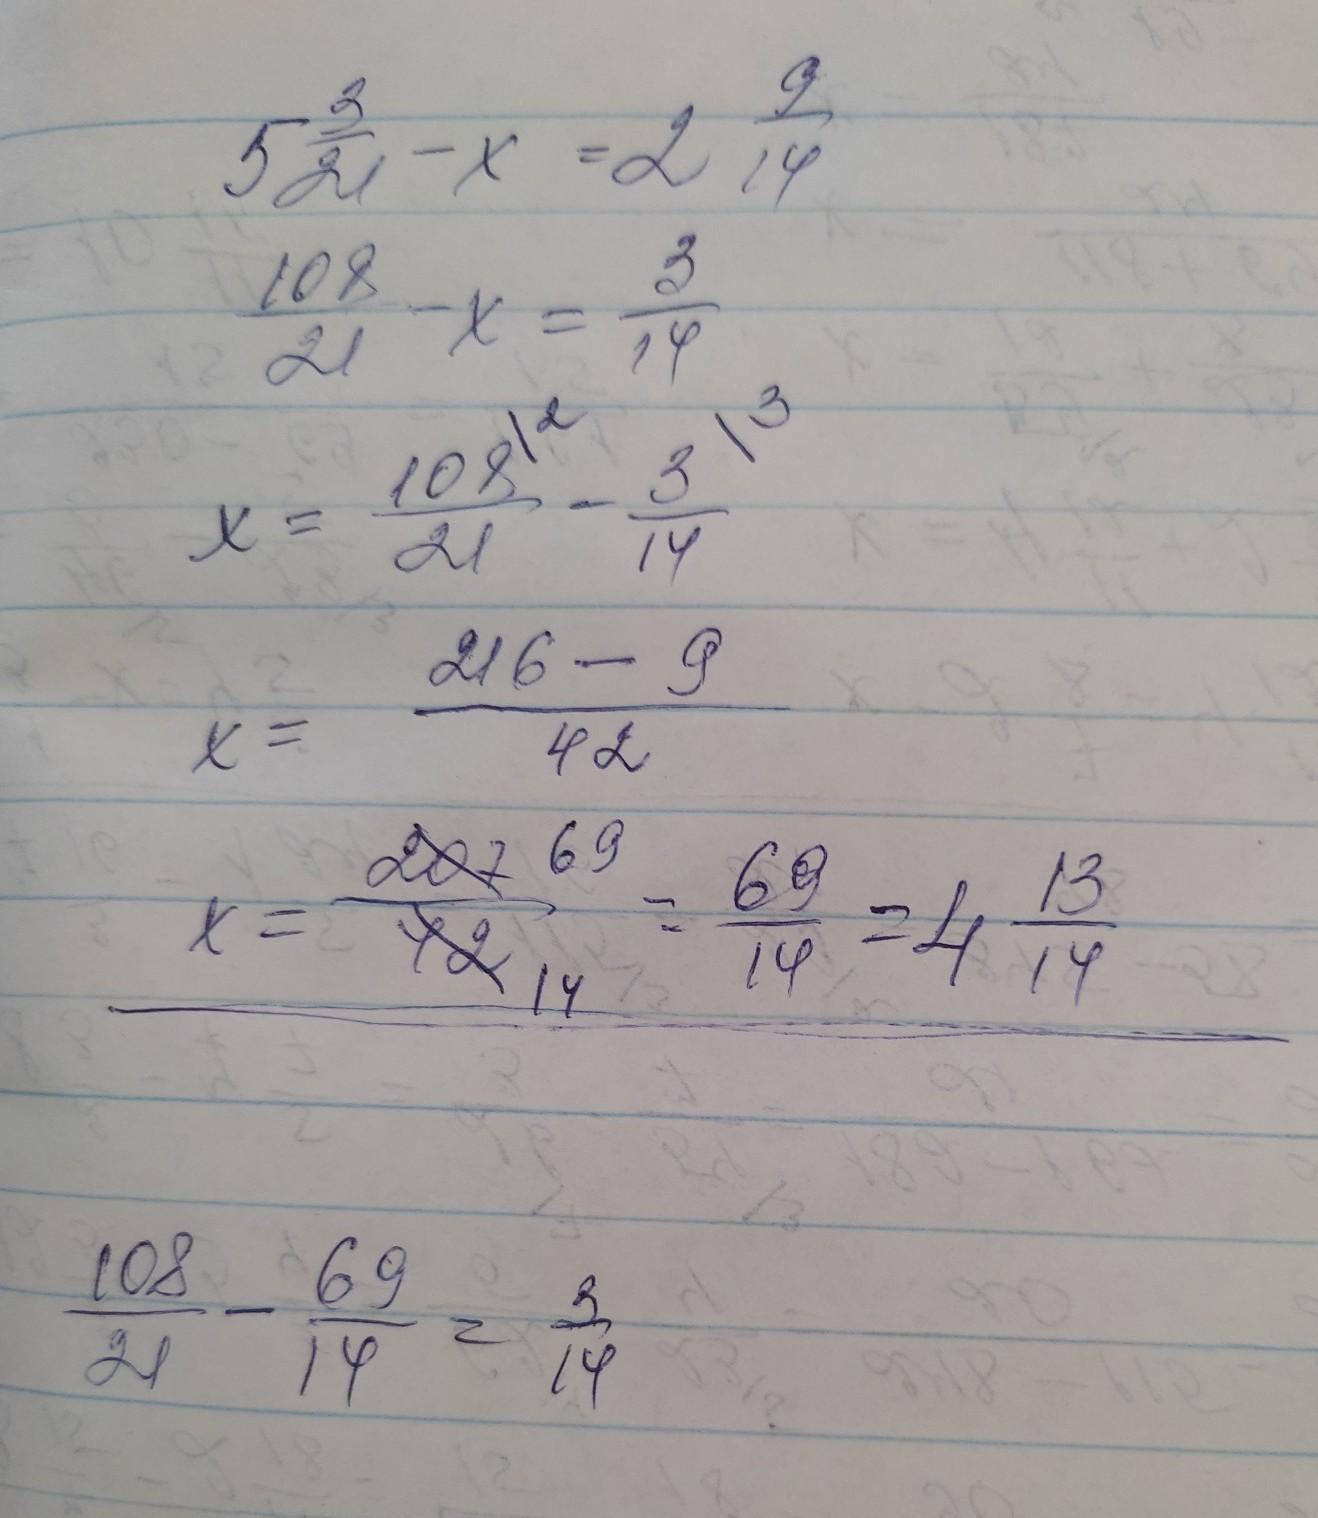 5 3/21 - x = 2 9/14
108/21 - x = 3/14
x = 108\2/21 - 3\3/14
x = 216 - 9/42
x = 207 69/42 14 = 69/14 = 4 13/14
108/21 - 69/14 = 3/14